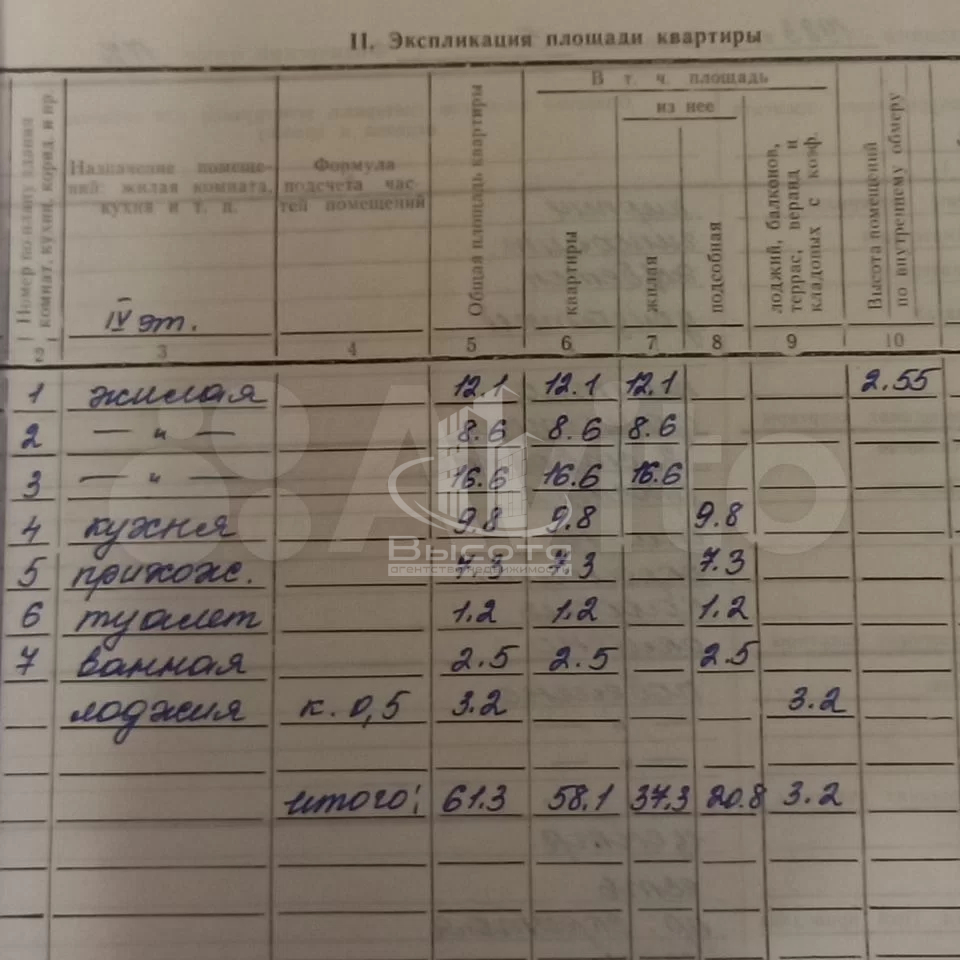 II. Экспликация площади квартиры
Номер по плану здания комнат, кухни, корид. и пр.
Назначение помеще-
ний: жилая комната,
кухня и т. п.
Формула
подсчета час-
тей помещений
Общая площадь квартиры
В т. ч. площадь
из нее
квартиры
жилая
подсобная
лоджий, балконов,
террас, веранд и
кладовых с коэф.
Высота помещений
по внутреннему обмеру
IV эт.
2 3 4 5 6 7 8 9 10
1 жилая 12.1 12.1 12.1 2.55
2 — " — 8.6 8.6 8.6
3 — " — 16.6 16.6 16.6
4 кухня 9.8 9.8 9.8
5 прихож. 7.3 7.3 7.3
6 туалет 1.2 1.2 1.2
7 ванная 2.5 2.5 2.5
лоджия к. 0,5 3.2 3.2
итого: 61.3 58.1 37.3 20.8 3.2
Avito
Высота
агентство недвижимости